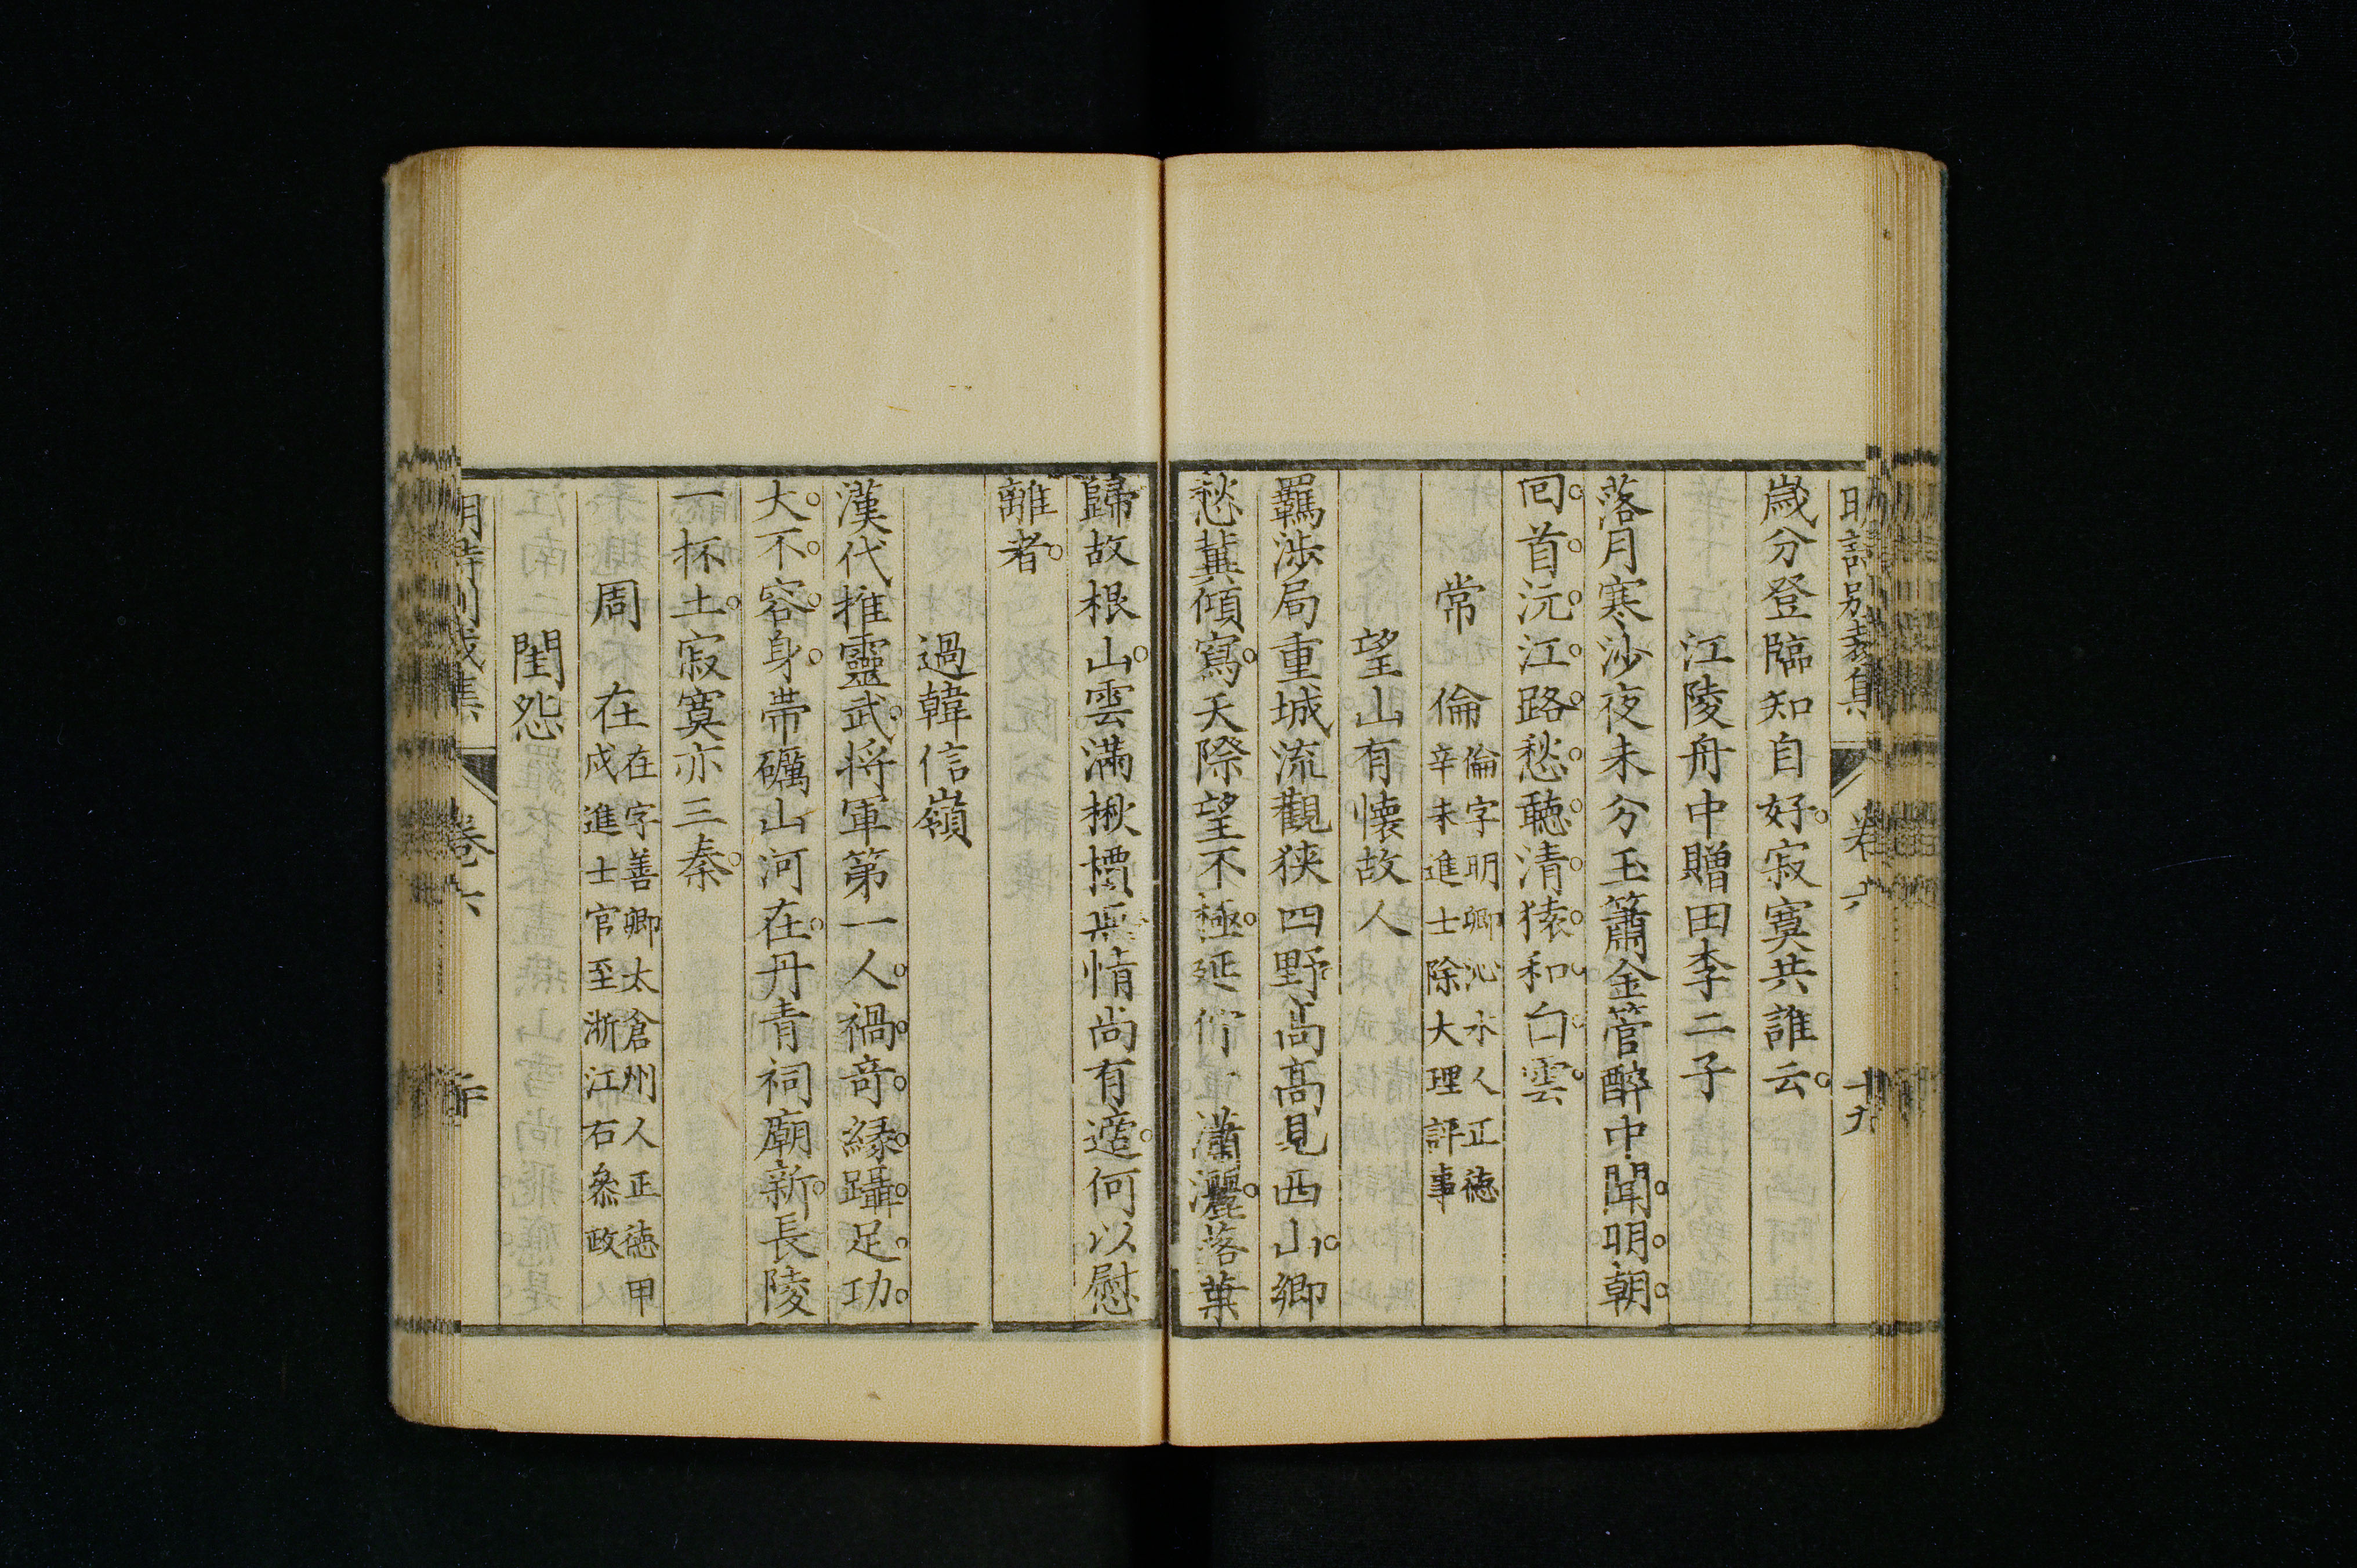 明詩別裁集 卷六 十九
歳分登臨知自好寂寞共誰云
江陵舟中贈田李二子
落月寒沙夜未分玉簫金管醉中聞明朝
回首沅江路愁聽清猿和白雲
常倫 倫字明卿沁水人正徳
辛未進士除大理評事
望山有懐故人
羈渉局重城流觀狹四野尚高見西山卿
愁冀傾寫天際望不極延佇一瀟灑落葉
歸故根山雲滿楸檟無情尚有適何以慰
離者
過韓信嶺
漢代推靈武将軍第一人禍竒縁躡足功
大不容身帶礪山河在丹青祠廟新長陵
一抔土寂寞亦三秦
周在 在字善卿太倉州人正徳甲
戍進士官至浙江右叅政
閨怨
明詩別裁集 卷六 二十